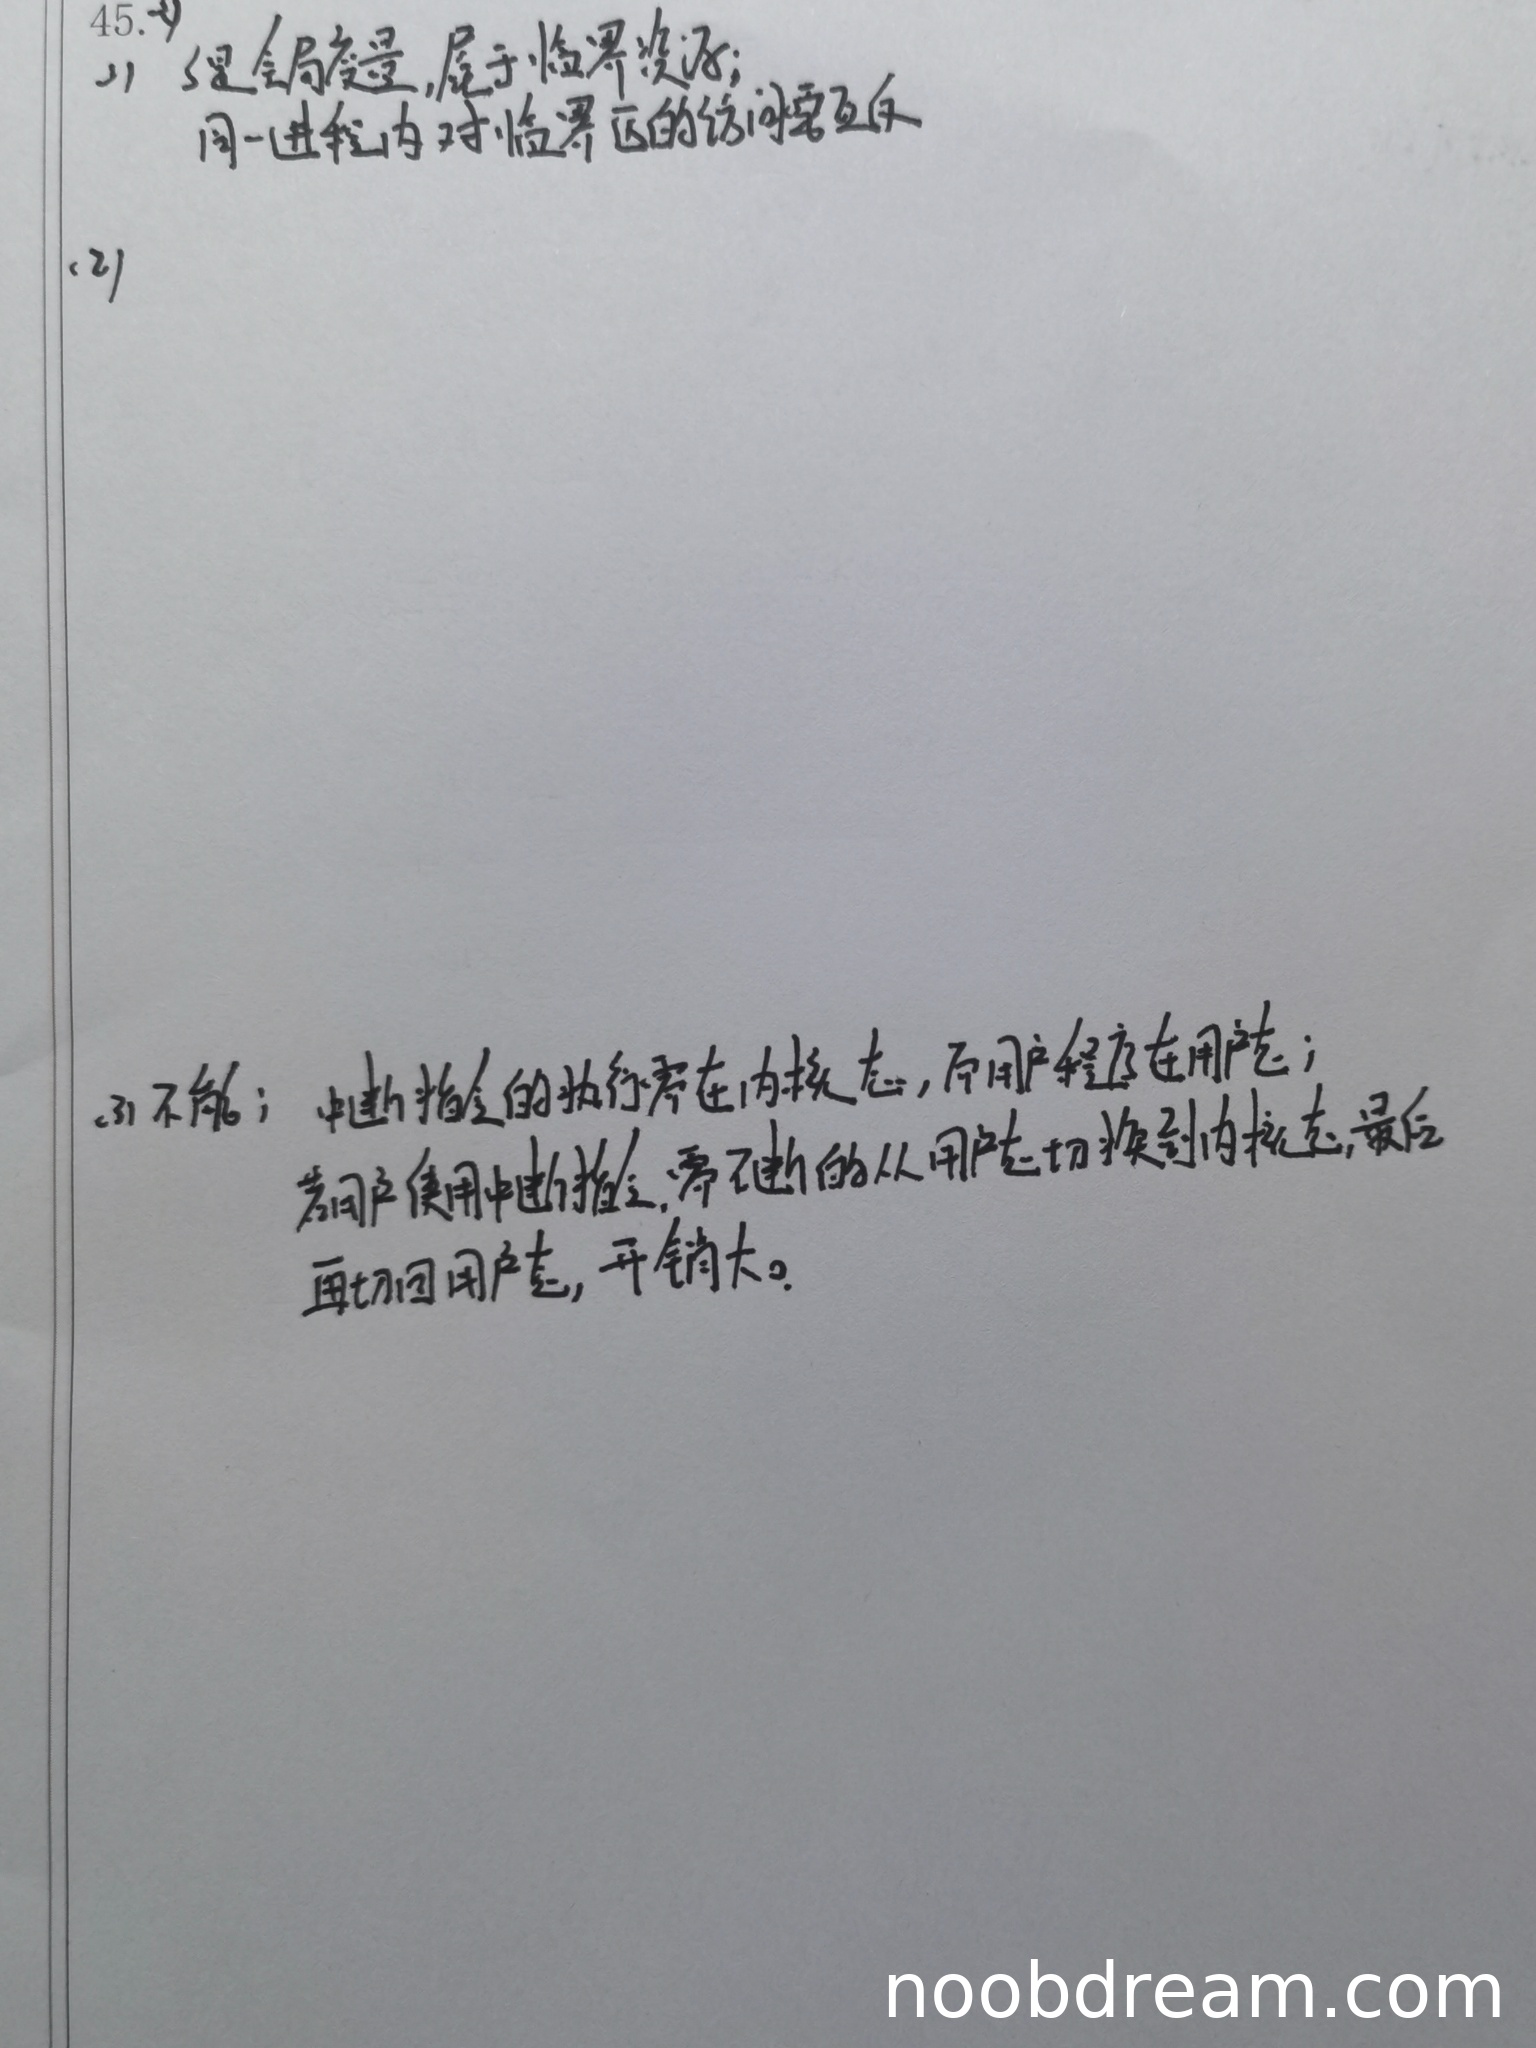 45.
(1) S是全局变量,属于临界资源;
同一进程内对临界区的访问需互斥
(2)
(3) 不能; 中断指令的执行需在内核态,而用户程序在用户态;
若用户使用中断指令,需不断的从用户态切换到内核态,最后
再切回用户态,开销大。
noobdream.com